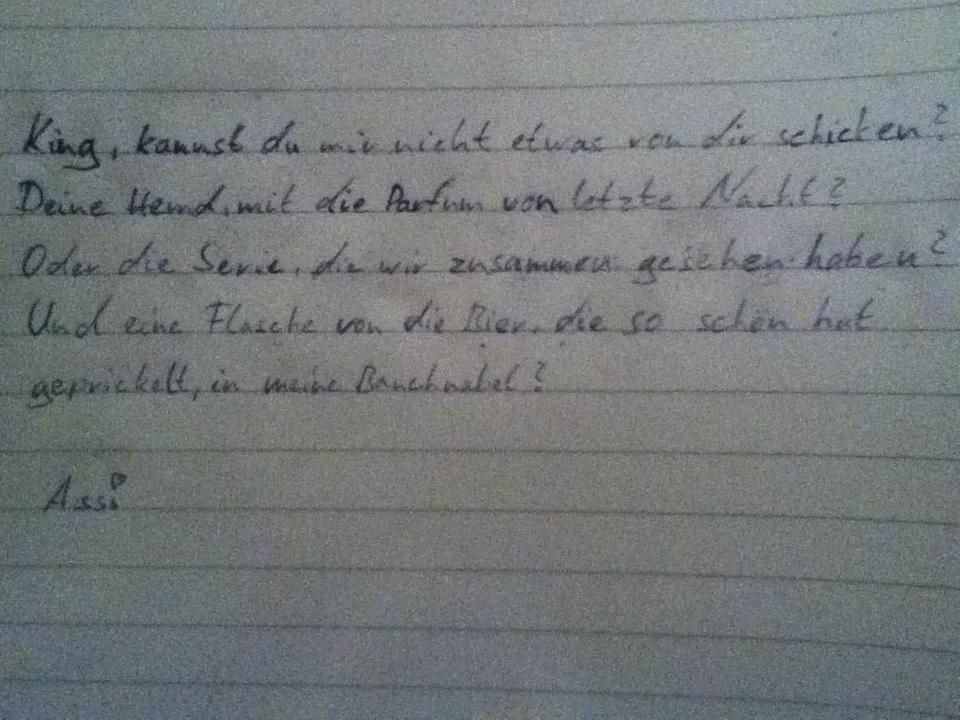 King, kannst du mir nicht etwas von dir schicken?
Deine Hemd, mit die Parfum von letzte Nacht?
Oder die Serie, die wir zusammen gesehen haben?
Und eine Flasche von die Bier, die so schön hat
geprickelt, in meine Bauchnabel?
Assi